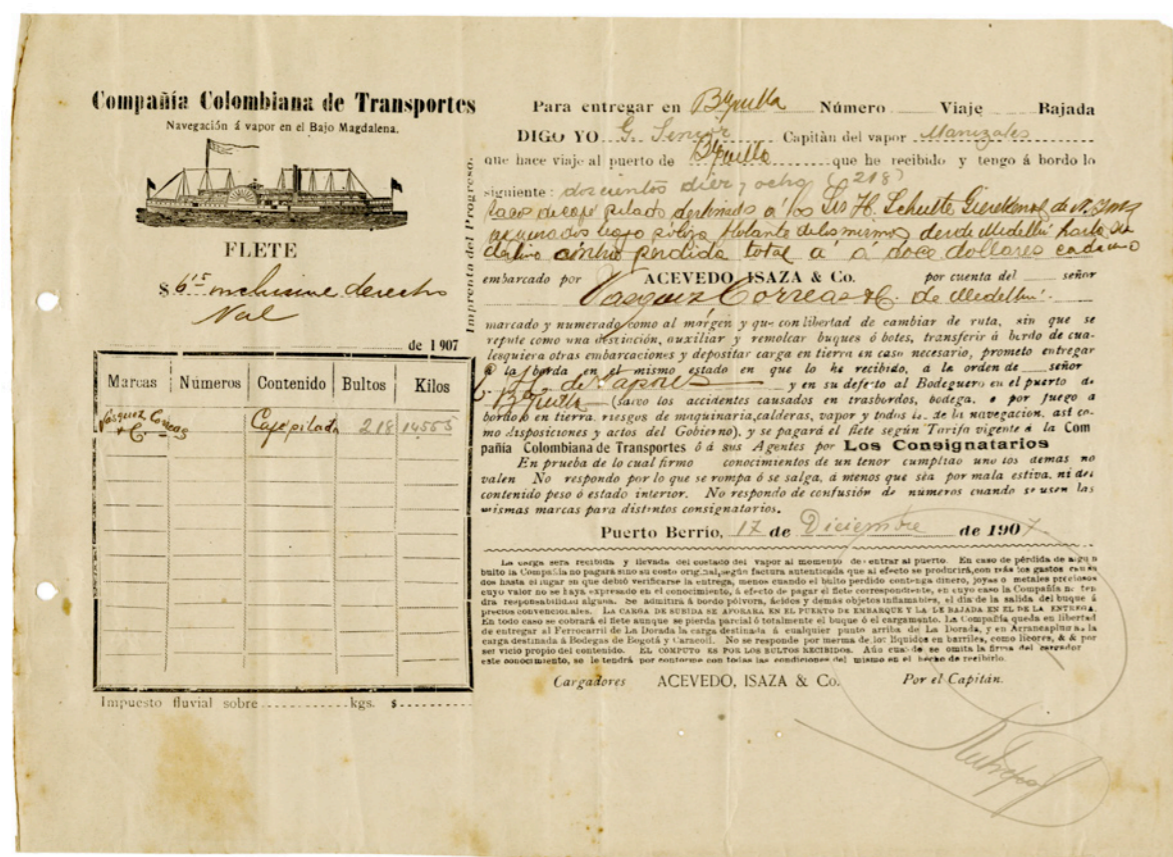 Compañía Colombiana de Transportes
Navegación á vapor en el Bajo Magdalena.
FLETE
$ 6.15 inclusive derecho
Nal
de 1907
Marcas Números Contenido Bultos Kilos
Vásquez Correas & C. Café pilado 218 14555
Impuesto fluvial sobre kgs. $
Imprenta del Progreso.
Para entregar en B/quilla Número Viaje Bajada
DIGO YO G. Senior Capitàn del vapor Manizales
que hace viaje al puerto de B/quilla que he recibido y tengo á bordo lo
siguiente: doscientos diez y ocho (218)
sacos de café pilado destinados á los Srs H. Schulte de N. York
asegurados bajo póliza flotante de los mismos desde Medellín hasta su
destino contra perdida total a á doce dollares cada uno
embarcado por ACEVEDO ISAZA & Co. por cuenta del señor
Vasquez Correas & C. de Medellín.
marcado y numerado como al márgen y que con libertad de cambiar de ruta, sin que se
repute como una desviación, auxiliar y remolcar buques ó botes, transferir á bordo de cua-
lesquiera otras embarcaciones y depositar carga en tierra en caso necesario, prometo entregar
á la borda en el mismo estado en que lo he recibido, a la orden de señor
y en su defecto al Bodeguero en el puerto de
B/quilla (salvo los accidentes causados en trasbordos, bodega, o por fuego a
bordo ó en tierra, riesgos de maquinaria, calderas, vapor y todos lo de la navegacion, así co-
mo disposiciones y actos del Gobierno), y se pagará el flete según Tarifa vigente á la Com
pañía Colombiana de Transportes ó á sus Agentes por Los Consignatarios
En prueba de lo cual firmo conocimientos de un tenor cumplido uno los demas no
valen No respondo por lo que se rompa ó se salga, á menos que sea por mala estiva, ni del
contenido peso ó estado interior. No respondo de confusión de números cuando se usen las
mismas marcas para distintos consignatarios.
Puerto Berrío, 17 de Diciembre de 1907
La carga sera recibida y llevada del costado del vapor al momento de entrar al puerto. En caso de pérdida de algún
bulto la Compañía no pagará sino su costo original, según factura autenticada que al efecto se producirá, con más los gastos causa
dos hasta el lugar en que debió verificarse la entrega, menos cuando el bulto perdido contenga dinero, joyas o metales preciosos
cuyo valor no se haya expresado en el conocimiento, á efecto de pagar el flete correspondiente, en cuyo caso la Compañía no ten
dra responsabilidad alguna. Se admitirá á bordo pólvora, ácidos y demás objetos inflamables, el día de la salida del buque á
precios convencionales. LA CARGA DE SUBIDA SE AFORARA EN EL PUERTO DE EMBARQUE Y LA DE BAJADA EN EL DE LA ENTREGA.
En todo caso se cobrará el flete aunque se pierda parcial ó totalmente el buque ó el cargamento. La Compañía queda en libertad
de entregar al Ferrocarril de La Dorada la carga destinada á cualquier punto arriba de La Dorada, y en Arrancaplumas la
carga destinada á Bodegas de Bogotá y Caracolí. No se responde por merma de los líquidos en barriles, como licores, & & por
ser vicio propio del contenido. EL COMPUTO ES POR LOS BULTOS RECIBIDOS. Aún cuando se omita la firma del cargador
este conocimiento, se le tendrá por conforme con todas las condiciones del mismo en el hecho de recibirlo.
Cargadores ACEVEDO, ISAZA & Co. Por el Capitán.